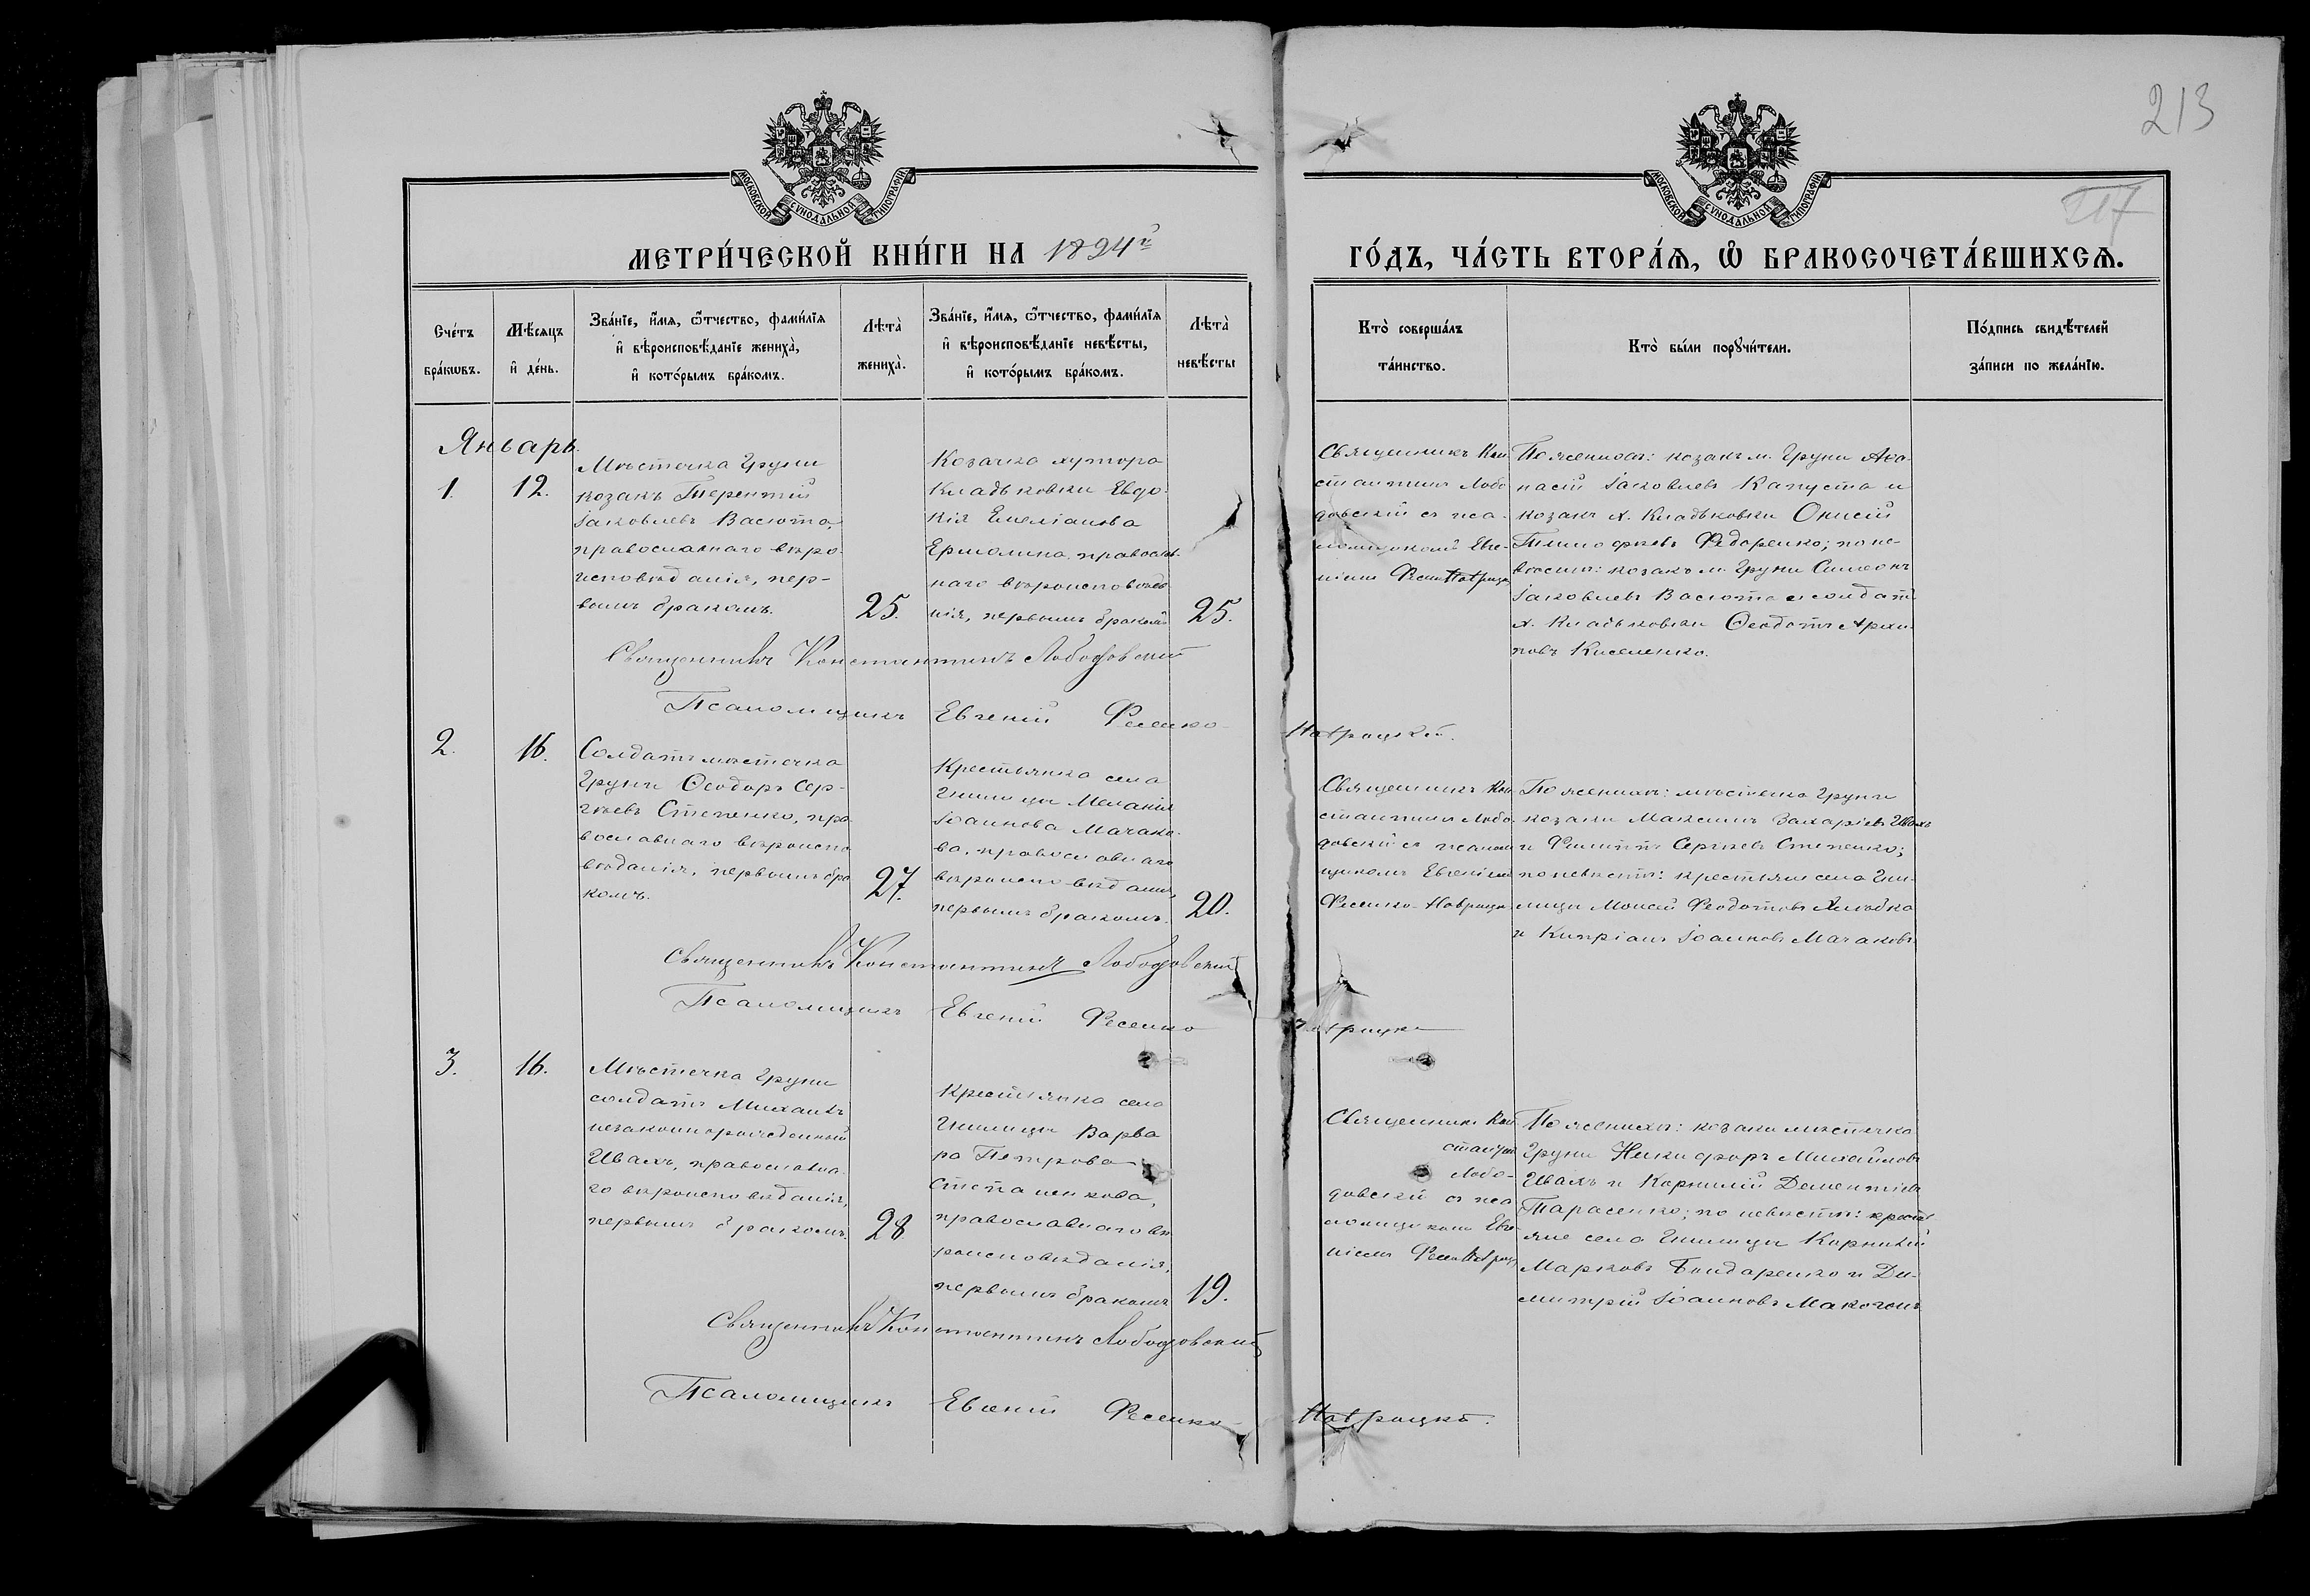 213
117
МОСКОВСКОЙ СѴНОДАЛЬНОЙ ТИПОГРАФІИ
МОСКОВСКОЙ СѴНОДАЛЬНОЙ ТИПОГРАФІИ
МЕТРИ́ЧЕСКОЙ КНИ́ГИ НА 1894й
ГО́ДЪ, ЧА́СТЬ ВТОРА́Ѧ, Ѡ҆ БРАКОСОЧЕТА́ВШИХСѦ.
Сче́тъ
бра́кѡвъ.
Мѣ́сяцъ
и҆ де́нь.
Зва́нїе, и҆́мѧ, ѻ҆́тчество, фами́лїѧ
и҆ вѣроисповѣ́данїе жениха̀,
и҆ кото́рымъ бра́комъ.
Лѣта̀
жениха̀.
Зва́нїе, и҆́мѧ, ѻ҆́тчество, фами́лїѧ
и҆ вѣроисповѣ́данїе невѣ́сты,
и҆ кото́рымъ бра́комъ.
Лѣта̀
невѣ́сты
Кто̀ соверша́лъ
та́инство.
Кто̀ бы́ли порꙋчи́тели.
По́дпись свидѣ́телей
за́писи по жела́нїю.
Январь.
1.
12.
Мѣстечка Груни
козакъ Терентій
Іаковлевъ Васюта,
православнаго вѣро-
исповѣданія, пер-
вымъ бракомъ.
25.
Козачка хутора
Кладьковки Евдо-
кія Емеліанова
Ермолина, православ-
наго вѣроисповѣда
нія, первымъ бракомъ
25.
Священникъ Кон
стантинъ Лобо
довскій съ пса-
ломщикомъ Евге-
ніемъ Фесен. Наврицк
По женихѣ: козакъ м. Груни Аѳа-
насій Іаковлевъ Капуста и
козакъ х. Кладьковки Онисій
Тимоѳеевъ Федоренко; по не-
вѣстѣ: козакъ м. Груни Симеонъ
Іаковлевъ Васюта и солдатъ
х. Кладьковки Ѳеодотъ Архи-
повъ Киселенко.
Священникъ Константинъ Лободовскій
Псаломщикъ Евгеній Фесенко-
Наврицкій.
2.
16.
Солдатъ мѣстечка
Груни Ѳеодоръ Сер-
гѣевъ Степенко, пра
вославнаго вѣроиспо
вѣданія, первымъ бра
комъ.
27.
Крестьянка села
Гнилицы Меланія
Іоаннова Мачако-
ва, православнаго
вѣроисповѣданія,
первымъ бракомъ.
20.
Священникъ Кон
стантинъ Лобо
довскій съ псалом
щикомъ Евгеніемъ
Фесенко-Наврицк
По женихѣ: мѣстечка Груни
козаки Максимъ Захаріевъ Ивахъ
и Филиппъ Сергѣевъ Степенко;
по невѣстѣ: крестьяне села Гни-
лицы Моисей Ѳеодотовъ
и Кипріанъ Іоанновъ Мачаковъ
Священникъ Константинъ Лободовскій
Псаломщикъ Евгеній Фесенко
Наврицкій
3.
16.
Мѣстечка Груни
солдатъ Михаилъ
незаконнорожденный
Ивахъ, православна-
го вѣроисповѣданія,
первымъ бракомъ.
28
Крестьянка села
Гнилицы Варва
ра Петрова
Степаненкова,
православнаго вѣ
роисповѣданія,
первымъ бракомъ
19.
Священникъ Кон
стантинъ
Лобо-
довскій съ пса
ломщикомъ Евге-
ніемъ Фесен. Наврицк
По женихѣ: козаки мѣстечка
Груни Никифоръ Михайловъ
Ивахъ и Корнилій Дементіевъ
Тарасенко; по невѣстѣ: кресть
яне села Гнилицы Корнилій
Марковъ Бондаренко и Ди-
митрій Іоанновъ Макогонъ
Священникъ Константинъ Лободовскій
Псаломщикъ Евгеній Фесенко-
Наврицкій.